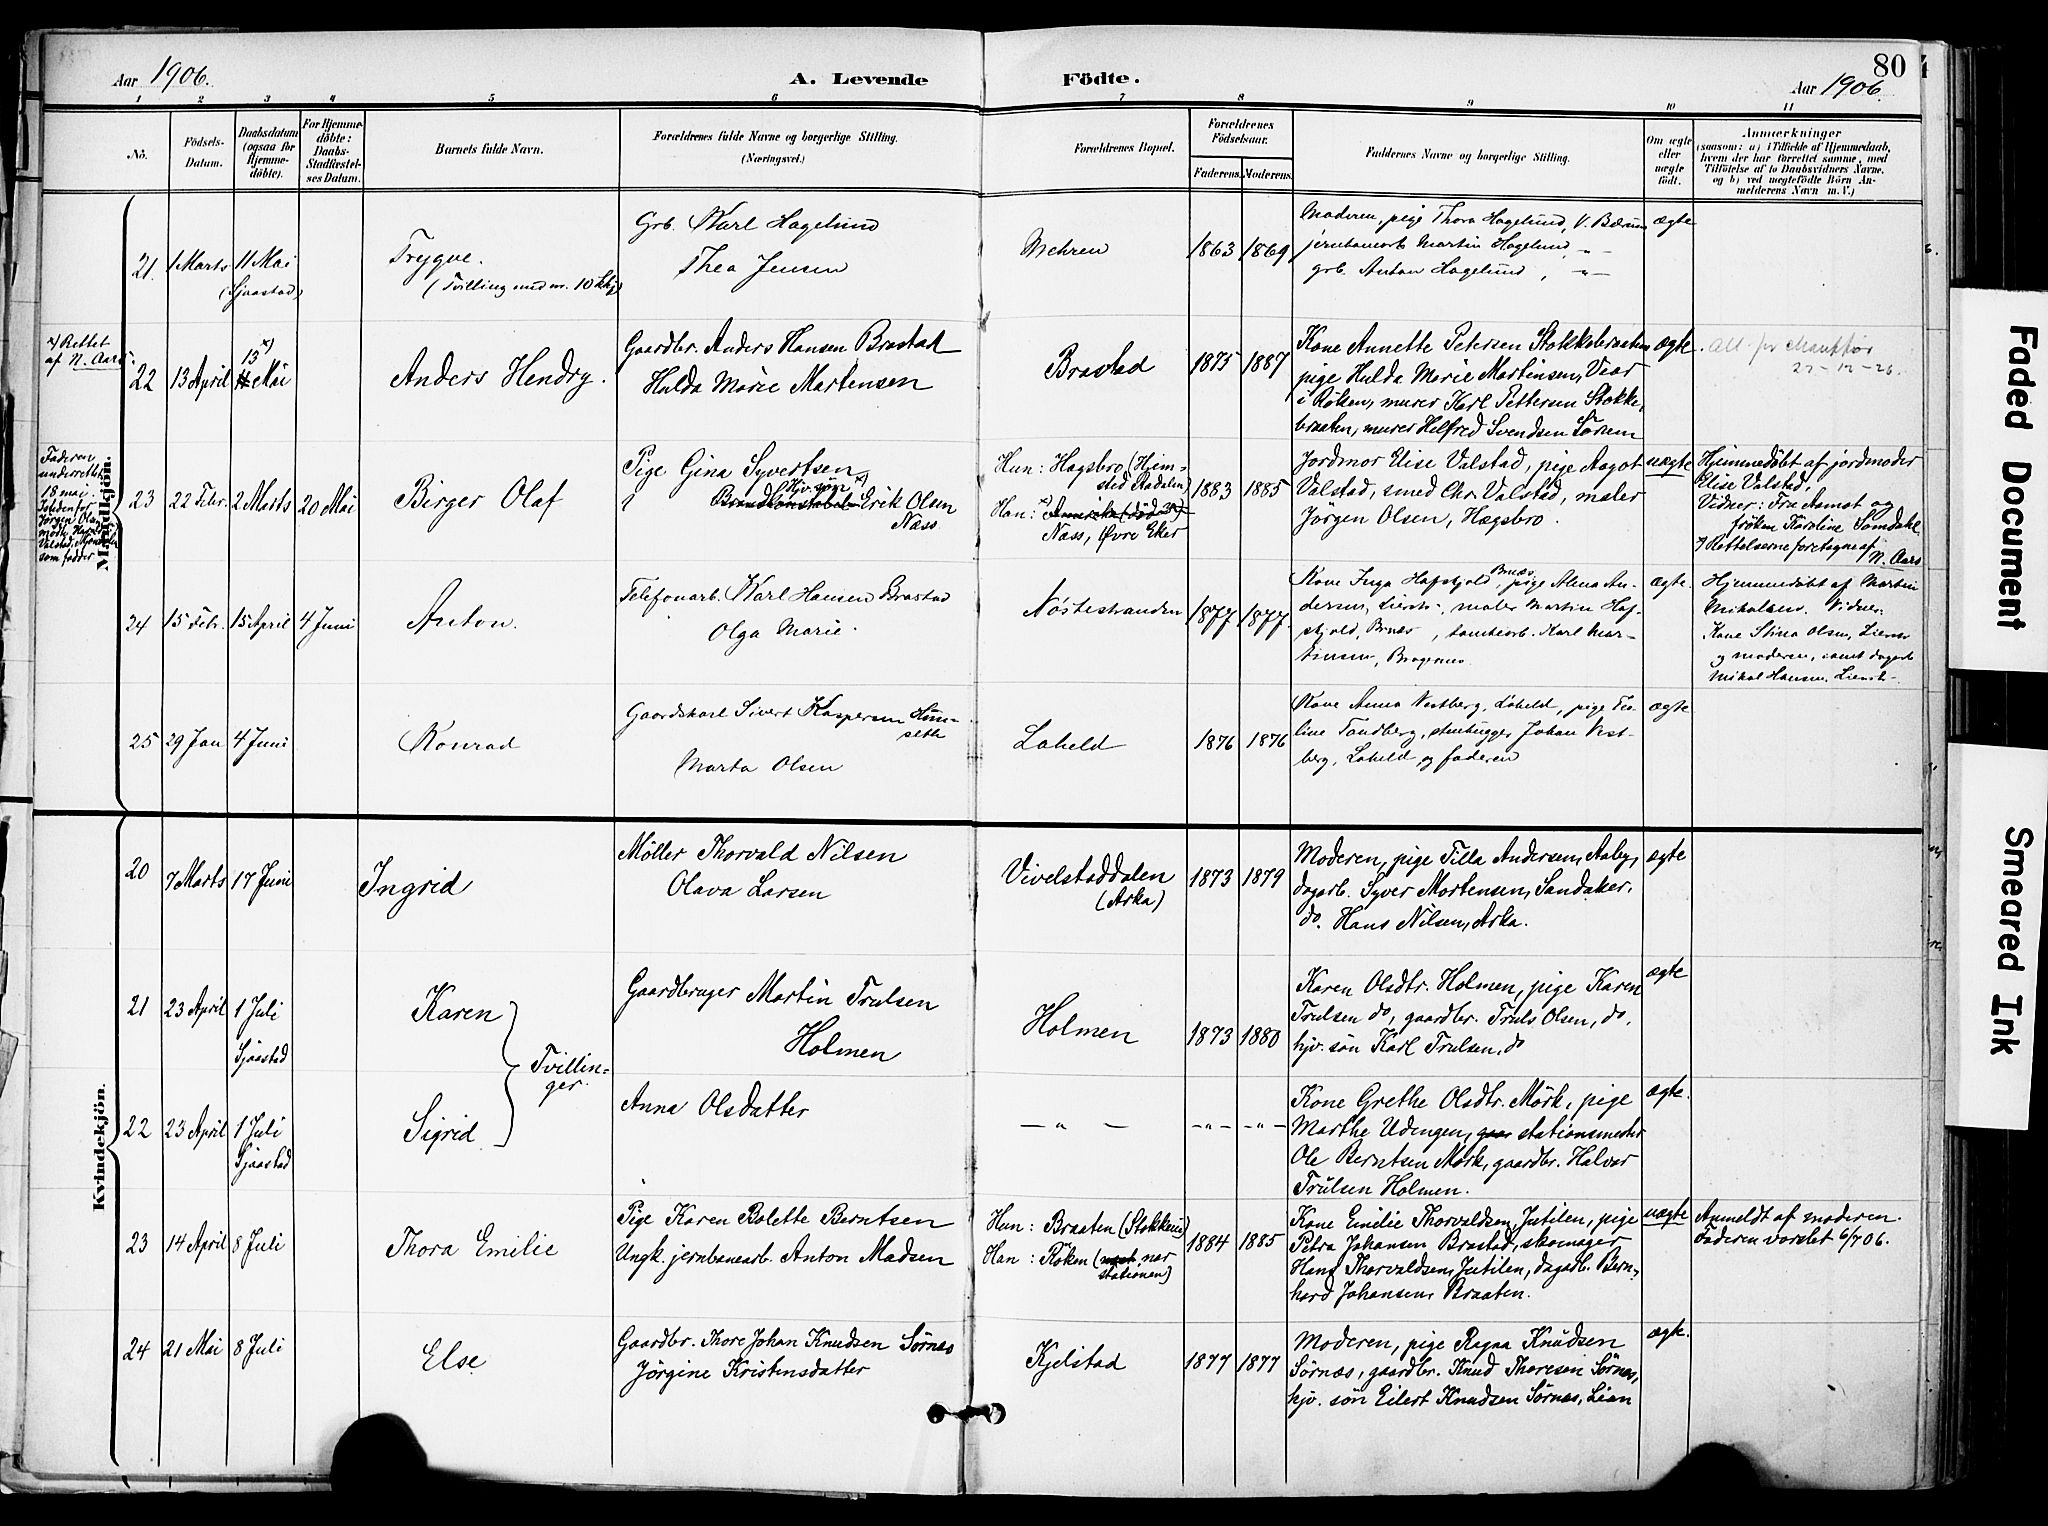 Aar 1906.
A. Levende
Födte.
80
Aar 1906.
1 2 3 4 5 6 7 8 9 10 11
No.
Födsels-
Datum.
Daabsdatum
(ogsaa for
Hjemme-
döbte).
For Hjemme-
döbte:
Daabs-
Stadfæstel-
ses Datum.
Barnets fulde Navn.
Forældrenes fulde Navne og borgerlige Stilling.
(Næringsvei.)
Forældrenes Bopæl.
Forældrenes
Födselsaar.
Faderens. Moderens.
Faddernes Navne og borgerlige Stilling.
Om ægte
eller
uægte
født.
Anmærkninger
(saasom: a) i Tilfælde af Hjemmedaab,
hvem der har forrettet samme, med
Tilföielse af to Daabsvidners Navne.
og b) ved uægtefödte Börn An-
melderens Navn m. V.)
Mandkjön.
21. 1 Marts 11 Mai
(Sjaastad)
Trygve.
(Tvilling med nr. 10 kkj)
Grb. Karl Hagelund
Thea Jensen
Mehren
1863 1869
Moderen, pige Thora Hagelund, V. Bærum
jernbanearb Martin Hagelund, -"-
grb. Anton Hagelund, -"-
ægte
*) Rettet
af N. Aars.
22 13 April 13 *) Mai
Anders Hendry.
Gaardbr. Anders Hansen Brastad
Hulda Marie Martensen
Brastad
1875 1887
Kone Annette Petersen Stokkebraaten
pige Hulda Marie Martinsen, Vear
i Røken, murer Karl Pettersen Stokke-
braaten, murer Helfred Svendsen Sörum
ægte.
27-12-26.
Faderen
underrettet
18 mai.
Istedenfor
Jørgen Olsen
Valstad,
som fadder
23 22 Febr. 2 Marts 20 Mai
Birger Olaf
Pige Gina Syvertsen
Hjv. søn *)
Brandkonstabel Erik Olsen
Næss
Hun: Hagsbro (Hjem-
sted Aadalen)
Han: *) Amerika
Næss, Øvre Eker
1883 1885
Jordmor Elise Valstad, pige Aagot
Valstad, smed Chr. Valstad, maler
Jörgen Olsen, Hægsbro.
uægte
Hjemmedøbt af jordmoder
Elise Valstad.
Vidner: Fru Aamot og
frøken Karoline Somdahl
*) Rettelserne foretagne af
N. Aars
24 15 Febr. 15 April 4 Juni
Anton.
Telefonarb. Karl Hansen Brastad
Olga Marie.
Nöstestranden
1877 1877.
Kone Inga Hafskjold, Brnæs, pige Alma An-
dersen, Lierst-, maler Martin Haf-
skjold, Brnæs, tomtearb. Karl Mar-
tinsen, Bragernes.
ægte.
Hjemmedøbt af Martin
Mikalsen. Vidner:
Kone Stina Olsen, Lierst
og moderen, samt dagarb
Mikal Hansen, Lierst-.
25 29 Jan 4 Juni
Konrad
Gaardskarl Sivert Kaspersen Hum-
seth
Marta Olsen
Laheld
1876 1876
Kone Anna Vestberg, Laheld, pige Ta-
line Tandberg, stenhugger Johan Vest-
berg, Laheld, og faderen
ægte
Kvindekjön.
20 7 Marts 17 Juni
Ingrid
Møller Thorvald Nilsen
Olava Larsen
Vivelstaddalen
(Aska)
1873 1879
Moderen, pige Tilla Andersen, Aaby,
dagarb. Syver Mortensen, Sandaker,
do. Hans Nilsen, Aska.
ægte
21 23 April 1 Juli
Sjaastad
Karen
Tvillin-
ger.
Gaardbruger Martin Trulsen
Holmen
Holmen
1873 1880
Karen Olsdtr. Holmen, pige Karen
Trulsen do, gaardbr. Truls Olsen, do,
hjv. søn Karl Trulsen, do
ægte
22 23 April 1 Juli
Sjaastad
Sigrid
Anna Olsdatter
— " —
-"- -"-
Kone Grethe Olsdtr. Mörk, pige
Marthe Udengen, gaar stationsmester
Ole Berntsen Mörk, gaardbr. Halvor
Trulsen Holmen.
ægte.
23 14 April 8 Juli
Thora Emilie
Pige Karen Bolette Berntsen
Ungk. jernbanearb. Anton Madsen
Hun: Braaten (Stokkerin)
Han: Röken (nær
stationen)
1884 1885
Kone Emilie Thorvaldsen Jutilen, pige
Petra Johansen Brastad, skomager
Hans Thorvaldsen, Jutilen, dagarb. Bern-
hard Johansen, Braaten.
uægte
Anmeldt af moderen.
Faderen varslet 6/7 06.
24 21 Mai 8 Juli
Else
Gaardbr. Thore Johan Knudsen Sørnæs
Jörgine Kristensdatter
Kjelstad
1877 1877
Moderen, pige Ragna Knudsen
Sørnæs, gaardbr. Knud Thoresen Sörnæs,
hjv. søn Eilert Knudsen Sørnæs, Lian
ægte.
Faded Document
Smeared Ink